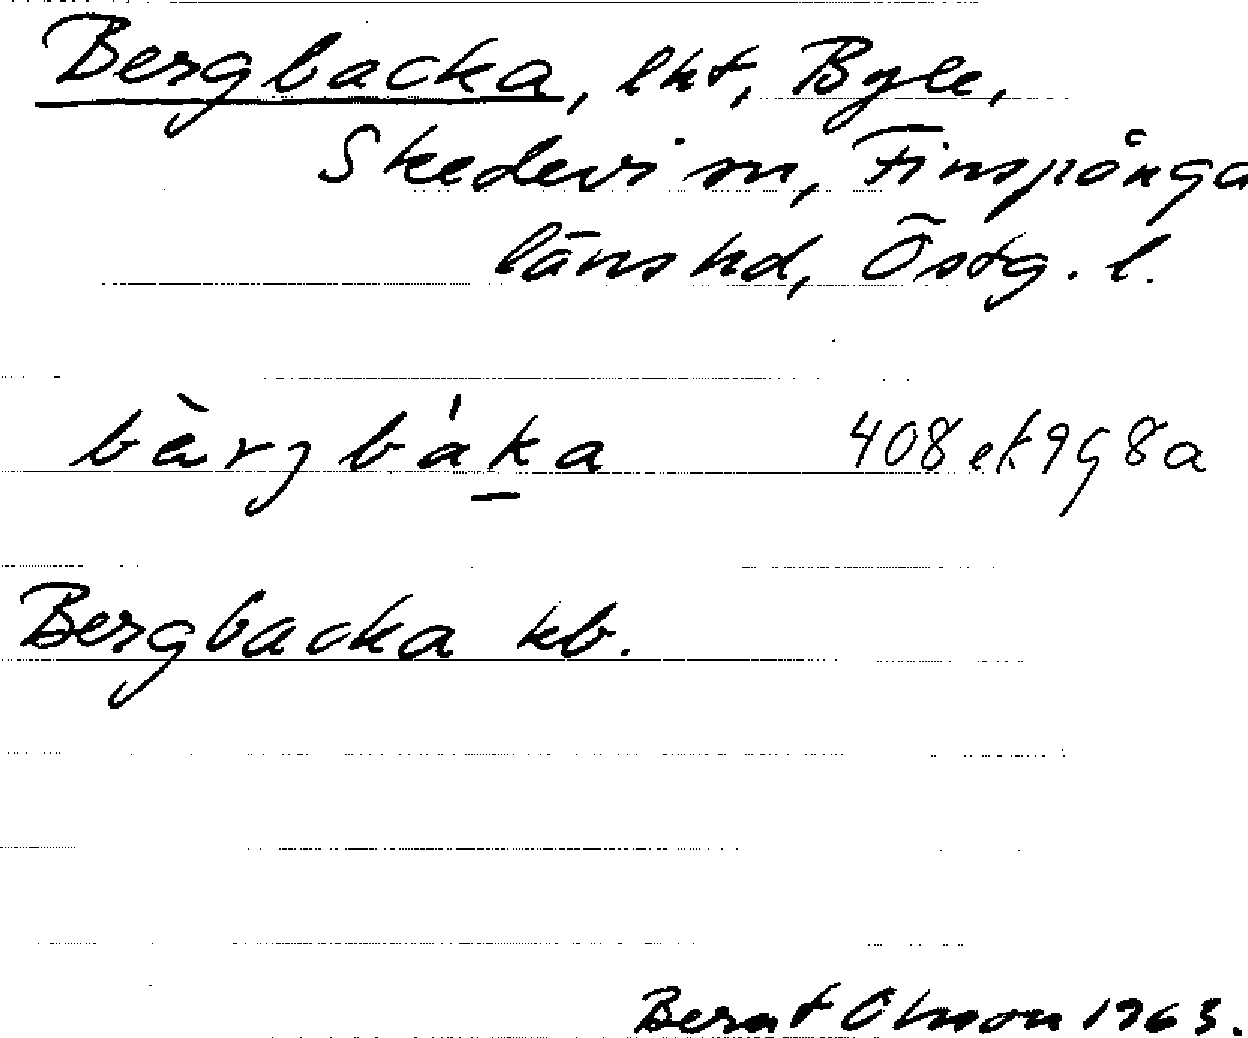 Bergbacka, lht, Byle,
Skedevi sn, Finspånga
läns hd, Östg. l.
bèrgbáka 408 ek 9g8a
Bergbacka kb.
Bernt Olsson 1963.